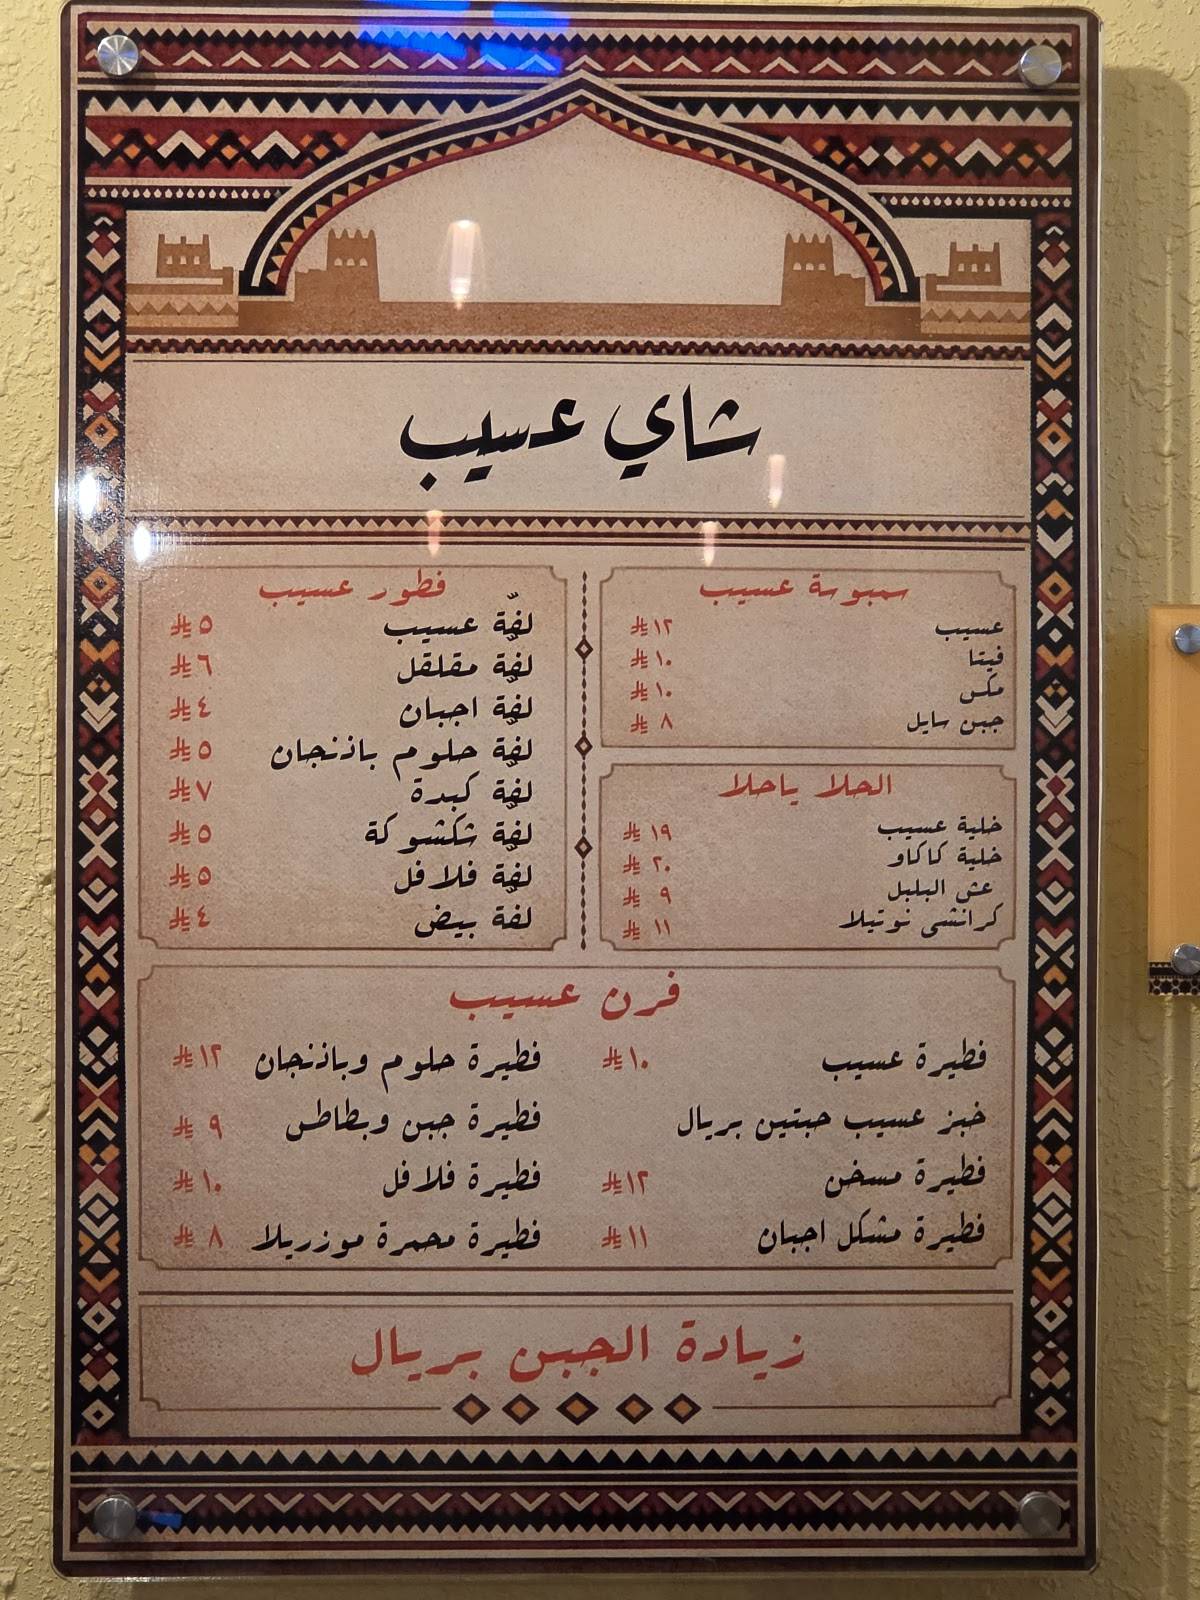 شاي عسيب
سمبوسة عسيب
عسيب ١٢
فيتا ١٠
مكس ١٠
جبن سايل ٨
الحلا ياحلا
خلية عسيب ١٩
خلية كاكاو ٢٠
عش البلبل ٩
كرانشي نوتيلا ١١
فطور عسيب
لفّة عسيب ٥
لفّة مقلقل ٦
لفّة اجبان ٤
لفّة حلوم باذنجان ٥
لفّة كبدة ٧
لفّة شكشوكة ٥
لفّة فلافل ٥
لفّة بيض ٤
فرن عسيب
فطيرة عسيب ١٠
خبز عسيب حبتين بريال
فطيرة مسخن ١٢
فطيرة مشكل اجبان ١١
فطيرة حلوم وباذنجان ١٢
فطيرة جبن وبطاطس ٩
فطيرة فلافل ١٠
فطيرة محمرة موزريلا ٨
زيادة الجبن بريال